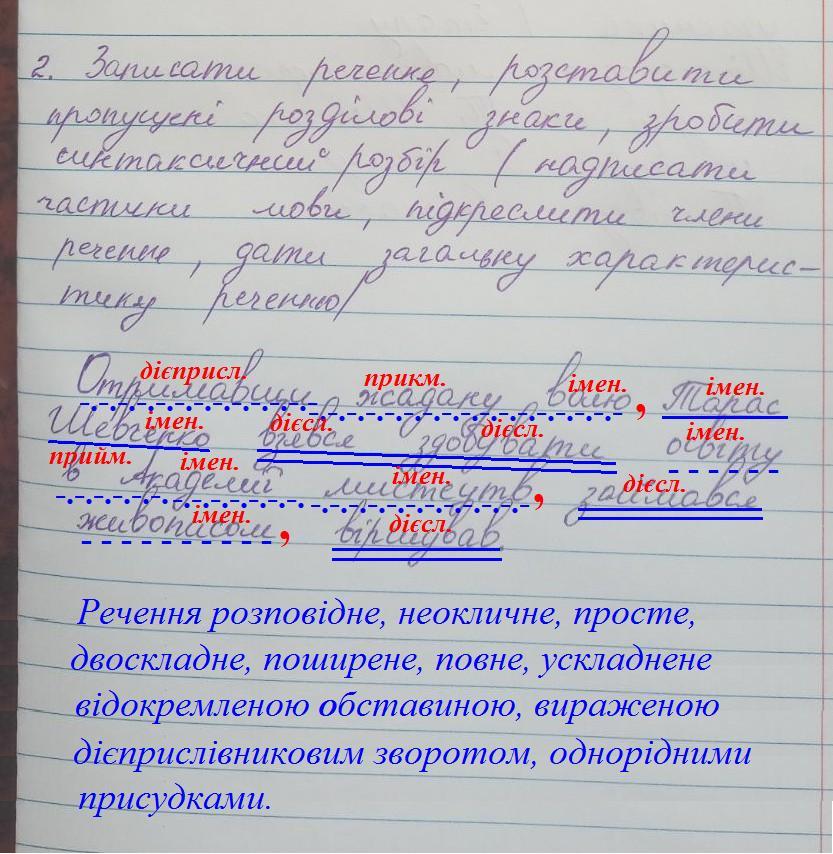 2. Записати речення, розставити
пропущені розділові знаки, зробити
синтаксичний розбір (надписати
частини мови, підкреслити члени
речення, дати загальну характерис-
тику реченню)
дієприсл. прикм. імен. імен.
Отримавши жадану волю, Тарас
імен. дієсл. дієсл. імен.
Шевченко взявся здобувати освіту
прийм. імен. імен. дієсл.
в Академії мистецтв, займався
імен. дієсл.
живописом, віршував.
Речення розповідне, неокличне, просте,
двоскладне, поширене, повне, ускладнене
відокремленою обставиною, вираженою
дієприслівниковим зворотом, однорідними
присудками.